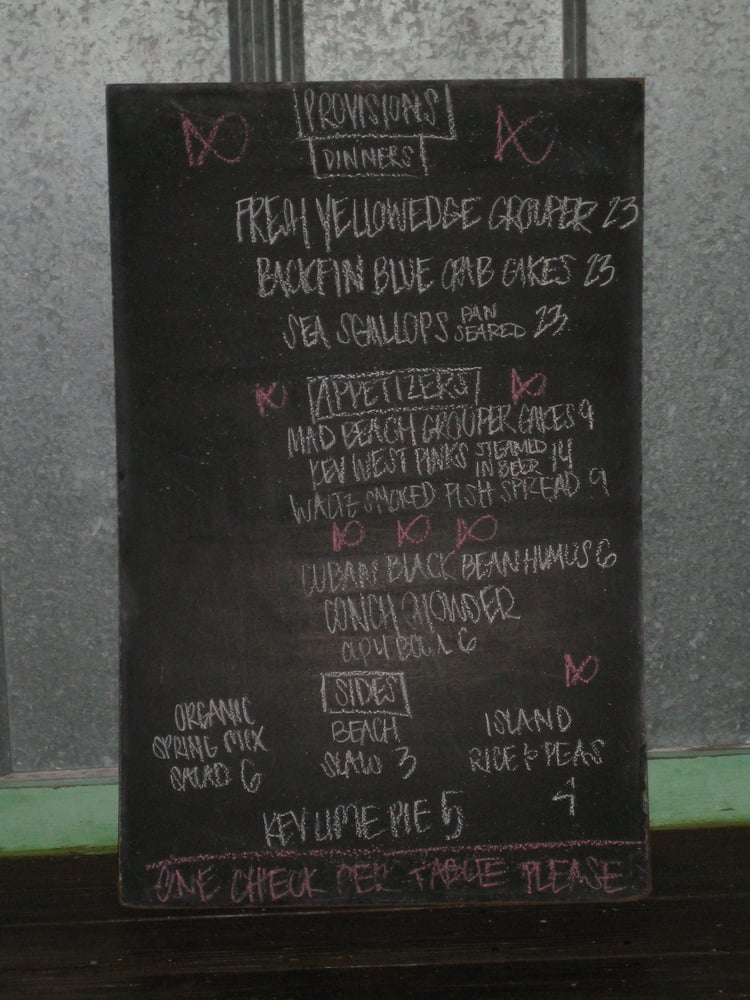 PROVISIONS
DINNERS
FRESH YELLOWEDGE GROUPER 23
BACKFIN BLUE CRAB CAKES 23
SEA SCALLOPS PAN SEARED 23
APPETIZERS
MAD BEACH GROUPER CAKES 9
KEY WEST PINKS STEAMED IN BEER 14
WALTZ SMOKED FISH SPREAD 9
CUBAN BLACK BEAN HUMUS 6
CONCH CHOWDER
CUP 4 BOWL 6
SIDES
ORGANIC
SPRING MIX
SALAD 6
BEACH
SLAW 3
ISLAND
RICE & PEAS
4
KEY LIME PIE 5
ONE CHECK PER TABLE PLEASE